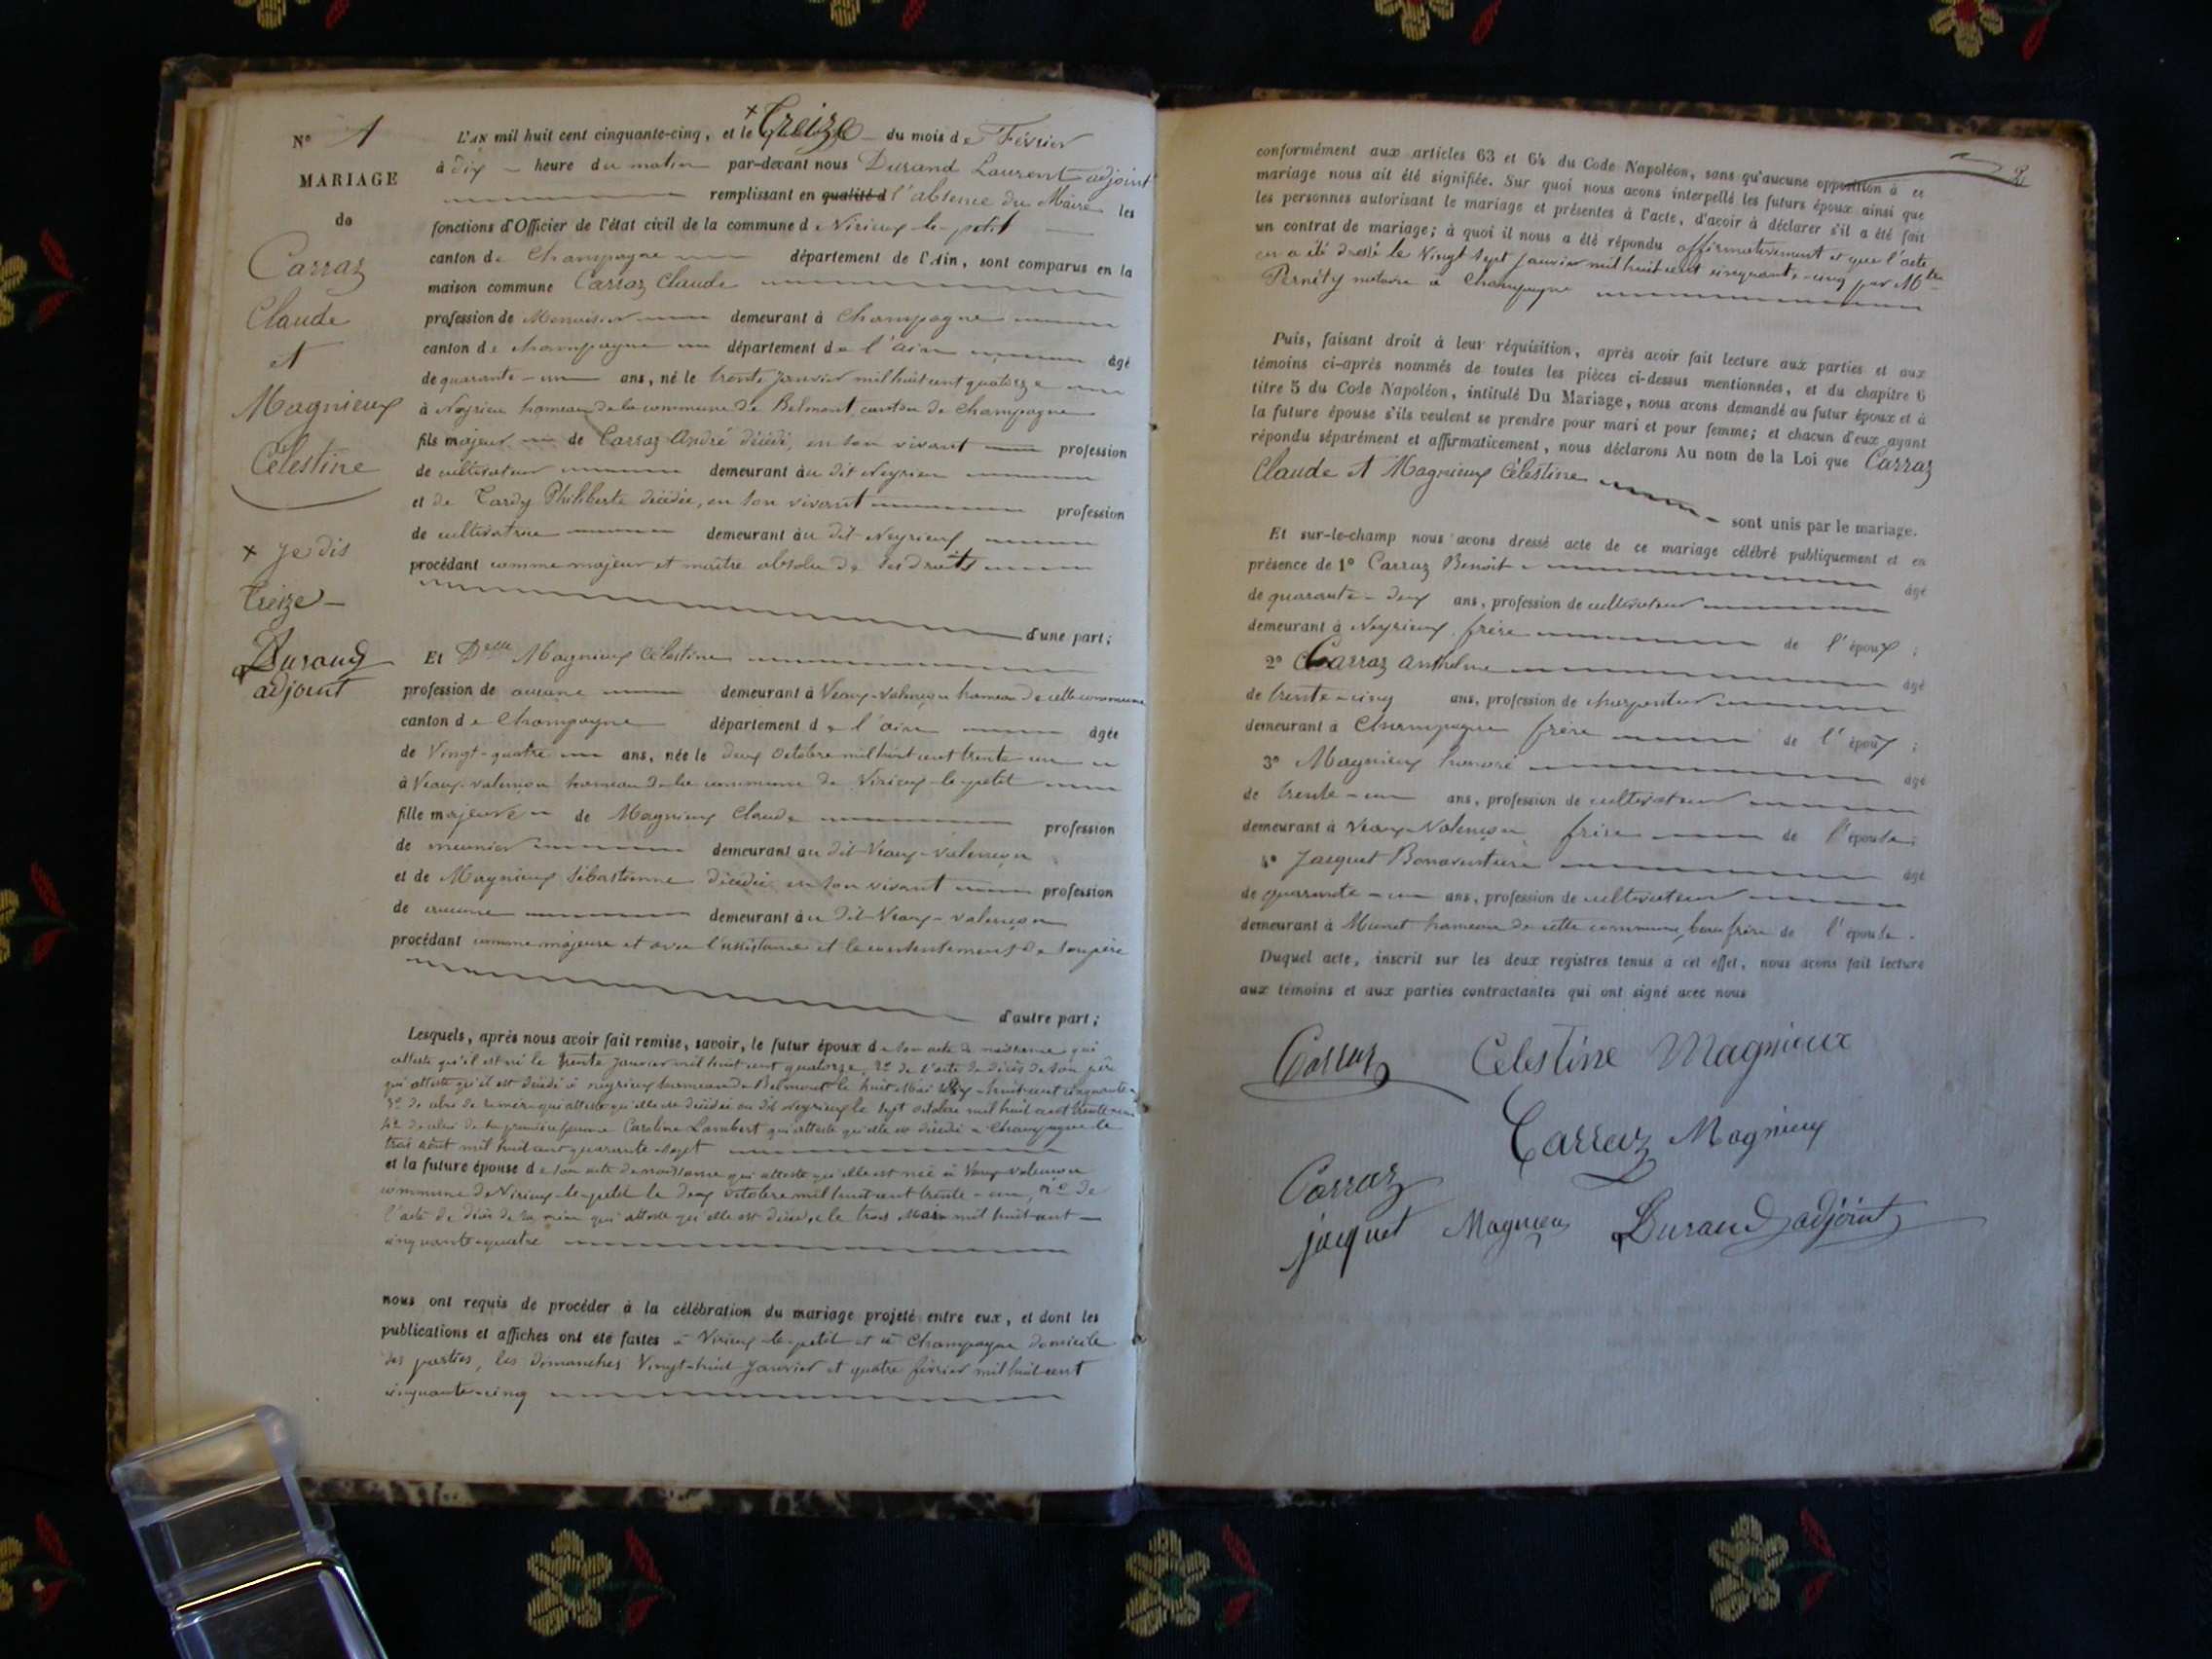 N° 1
MARIAGE
de
Carraz
Claude
et
Magnieux
Célestine
+ Je dis
Treize —
Durand
adjoint
L'AN mil huit cent cinquante-cinq, et le + Treize du mois de Février
à dix heure du matin par-devant nous Durand Laurent adjoint
remplissant en qualité d l'absence du Maire les
fonctions d'Officier de l'état civil de la commune de Virieux-le-petit
canton de Champagne département de l'Ain, sont comparus en la
maison commune Carraz Claude
profession de Menuisier demeurant à Champagne
canton de champagne département de l'ain âgé
de quarante-un ans, né le trente janvier mil huit cent quatorze
à Neyrieu hameau de la commune de Belmont, canton de champagne
fils majeur de Carraz André décédé, en son vivant profession
de cultivateur demeurant au dit Neyrieu
et de Tardy Philiberte décédée, en son vivant profession
de cultivatrice demeurant au dit Neyrieux
procédant comme majeur et maître absolu de ses droits
d'une part;
Et Delle Magnieux Célestine
profession de aucune demeurant à Vaux-Valençon hameau de cette commune
canton de Champagne département de l'ain âgée
de Vingt-quatre ans, née le deux octobre mil huit cent trente-un
à Vaux-valençon hameau de la commune de Virieux-le-petit
fille majeure de Magnieux Claude profession
de meunier demeurant au dit Vaux-valençon
et de Magnieux Sébastienne décédée en son vivant profession
de aucune demeurant au dit Vaux-valençon
procédant comme majeure et avec l'assistance et le consentement de son père
d'autre part;
Lesquels, après nous avoir fait remise, savoir, le futur époux de son acte de naissance qui
atteste qu'il est né le trente janvier mil huit cent quatorze, 2° de l'acte de décès de son père
qui atteste qu'il est décédé à neyrieux hameau de Belmont le huit Mai mil huit cent cinquante
3° de celui de sa mère qui atteste qu'elle est décédée au dit Neyrieux le sept octobre mil huit cent trente
4° de celui de sa première femme Caroline Lambert qui atteste qu'elle est décédée à Champagne le
trois août mil huit cent quarante-sept
et la future épouse de son acte de naissance qui atteste qu'elle est née à Vaux-valençon
commune de Virieux-le-petit le deux octobre mil huit cent trente-un, 2° de
l'acte de décès de sa mère qui atteste qu'elle est décédée le trois Mars mil huit cent
cinquante-quatre
nous ont requis de procéder à la célébration du mariage projeté entre eux, et dont les
publications et affiches ont été faites à Virieux-le-petit et à Champagne domicile
des parties, les dimanches Vingt-huit Janvier et quatre février mil huit cent
cinquante-cinq
2
conformément aux articles 63 et 64 du Code Napoléon, sans qu'aucune opposition à ce
mariage nous ait été signifiée. Sur quoi nous avons interpellé les futurs époux ainsi que
les personnes autorisant le mariage et présentes à l'acte, d'avoir à déclarer s'il a été fait
un contrat de mariage; à quoi il nous a été répondu affirmativement et que l'acte
en a été dressé le Vingt sept janvier mil huit cent cinquante-cinq par Mtre
Pernéty notaire à Champagne
Puis, faisant droit à leur réquisition, après avoir fait lecture aux parties et aux
témoins ci-après nommés de toutes les pièces ci-dessus mentionnées, et du chapitre 6
titre 5 du Code Napoléon, intitulé Du Mariage, nous avons demandé au futur époux et à
la future épouse s'ils veulent se prendre pour mari et pour femme; et chacun d'eux ayant
répondu séparément et affirmativement, nous déclarons Au nom de la Loi que Carraz
Claude et Magnieux Célestine
sont unis par le mariage.
Et sur-le-champ nous avons dressé acte de ce mariage célébré publiquement et en
présence de 1° Carraz Benoit âgé
de quarante-deux ans, profession de cultivateur
demeurant à Neyrieux frère de l'époux ;
2° Carraz Anthelme âgé
de trente-cinq ans, profession de charpentier
demeurant à Champagne frère de l'époux ;
3° Magnieux honoré âgé
de trente-un ans, profession de cultivateur
demeurant à Vaux-Valençon frère de l'épouse;
4° Jacquet Bonaventure âgé
de quarante-un ans, profession de cultivateur
demeurant à Munet hameau de cette commune, beau frère de l'épouse.
Duquel acte, inscrit sur les deux registres tenus à cet effet, nous avons fait lecture
aux témoins et aux parties contractantes qui ont signé avec nous
Carraz Celestine Magnieux
Carraz Magnieux
Carraz
jacquet Magnieu Durand adjoint